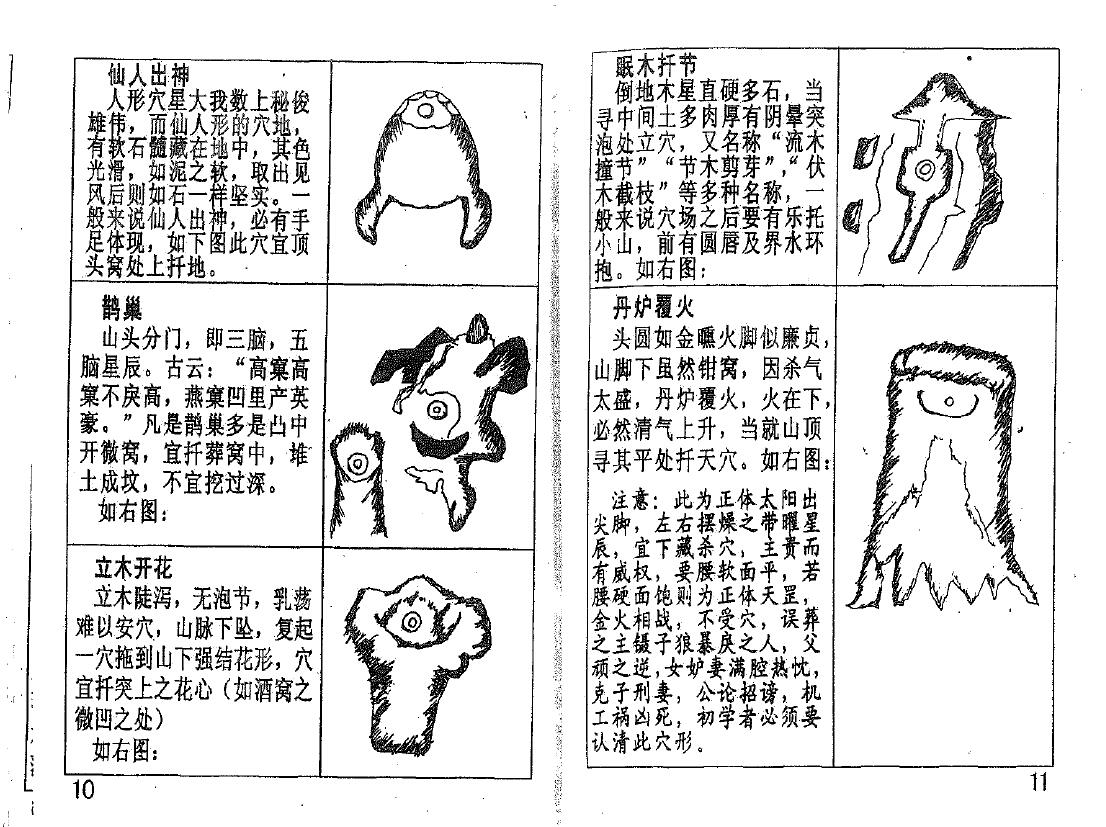 仙人出神
人形穴星大我数上秘俊
雄伟，而仙人形的穴地，
有软石髓藏在地中，其色
光滑，如泥之软，取出见
风后则如石一样坚实。一
般来说仙人出神，必有手
足体现，如下图此穴宜顶
头窝处上扦地。
鹊巢
山头分门，即三脑，五
脑星辰。古云：“高窠高
窠不戾高，燕窠凹里产英
豪。”凡是鹊巢多是凸中
开微窝，宜扦葬窝中，堆
土成坟，不宜挖过深。
如右图：
立木开花
立木陡泻，无泡节，乳荡
难以安穴，山脉下坠，复起
一穴拖到山下强结花形，穴
宜扦突上之花心（如酒窝之
微凹之处）
如右图：
10
眠木扦节
倒地木星直硬多石，当
寻中间土多肉厚有阴晕突
泡处立穴，又名称“流木
撞节”“节木剪芽”，“伏
木截枝”等多种名称，一
般来说穴场之后要有乐托
小山，前有圆唇及界水环
抱。如右图：
丹炉覆火
头圆如金曛火脚似廉贞，
山脚下虽然钳窝，因杀气
太盛，丹炉覆火，火在下，
必然清气上升，当就山顶
寻其平处扦天穴。如右图：
注意：此为正体太阳出
尖脚，左右摆燥之带曜星
辰，宜下藏杀穴，主贵而
有威权，要腰软面平，若
腰硬面饱则为正体天罡，
金火相战，不受穴，误葬
之主镊子狼暴戾之人，父
顽之逆，女妒妻满腔热忱，
克子刑妻，公论招谤，机
工祸凶死，初学者必须要
认清此穴形。
11